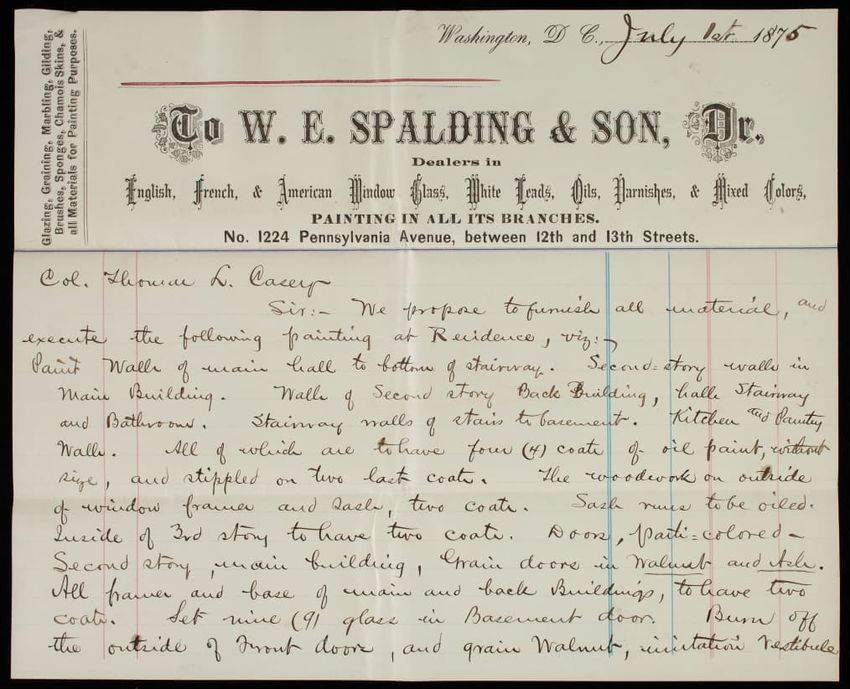 Washington, D C., July 1st 1875
Glazing, Graining, Marbling, Gilding,
Brushes, Sponges, Chamois Skins, &
all Materials for Painting Purposes.
To W. E. SPALDING & SON, Dr.,
Dealers in
English, French, & American Window Glass, White Leads, Oils, Varnishes, & Mixed Colors,
PAINTING IN ALL ITS BRANCHES.
No. 1224 Pennsylvania Avenue, between 12th and 13th Streets.
Col. Thomas L. Casey
Sir:- We propose to furnish all material, and
execute the following painting at Residence, viz:-
Paint Walls of main hall to bottom of stairway. Second=story walls in
Main Building. Walls of Second story Back Building, halls Stairway
and Bathroom. Stairway walls of stairs to basement. Kitchen and Pantry
Walls. All of which are to have four (4) coats of oil paint, without
size, and stippled on two last coats. The woodwork on outside
of window frames and sash, two coats. Sash runs to be oiled.
Inside of 3rd story to have two coats. Doors, parti=colored-
Second story, main building, Grain doors in Walnut and Ash.
All frames and base of main and back Buildings, to have two
coats. Set nine (9) glass in Basement door. Burn off
the outside of Front doors, and grain Walnut, imitation Vestibule